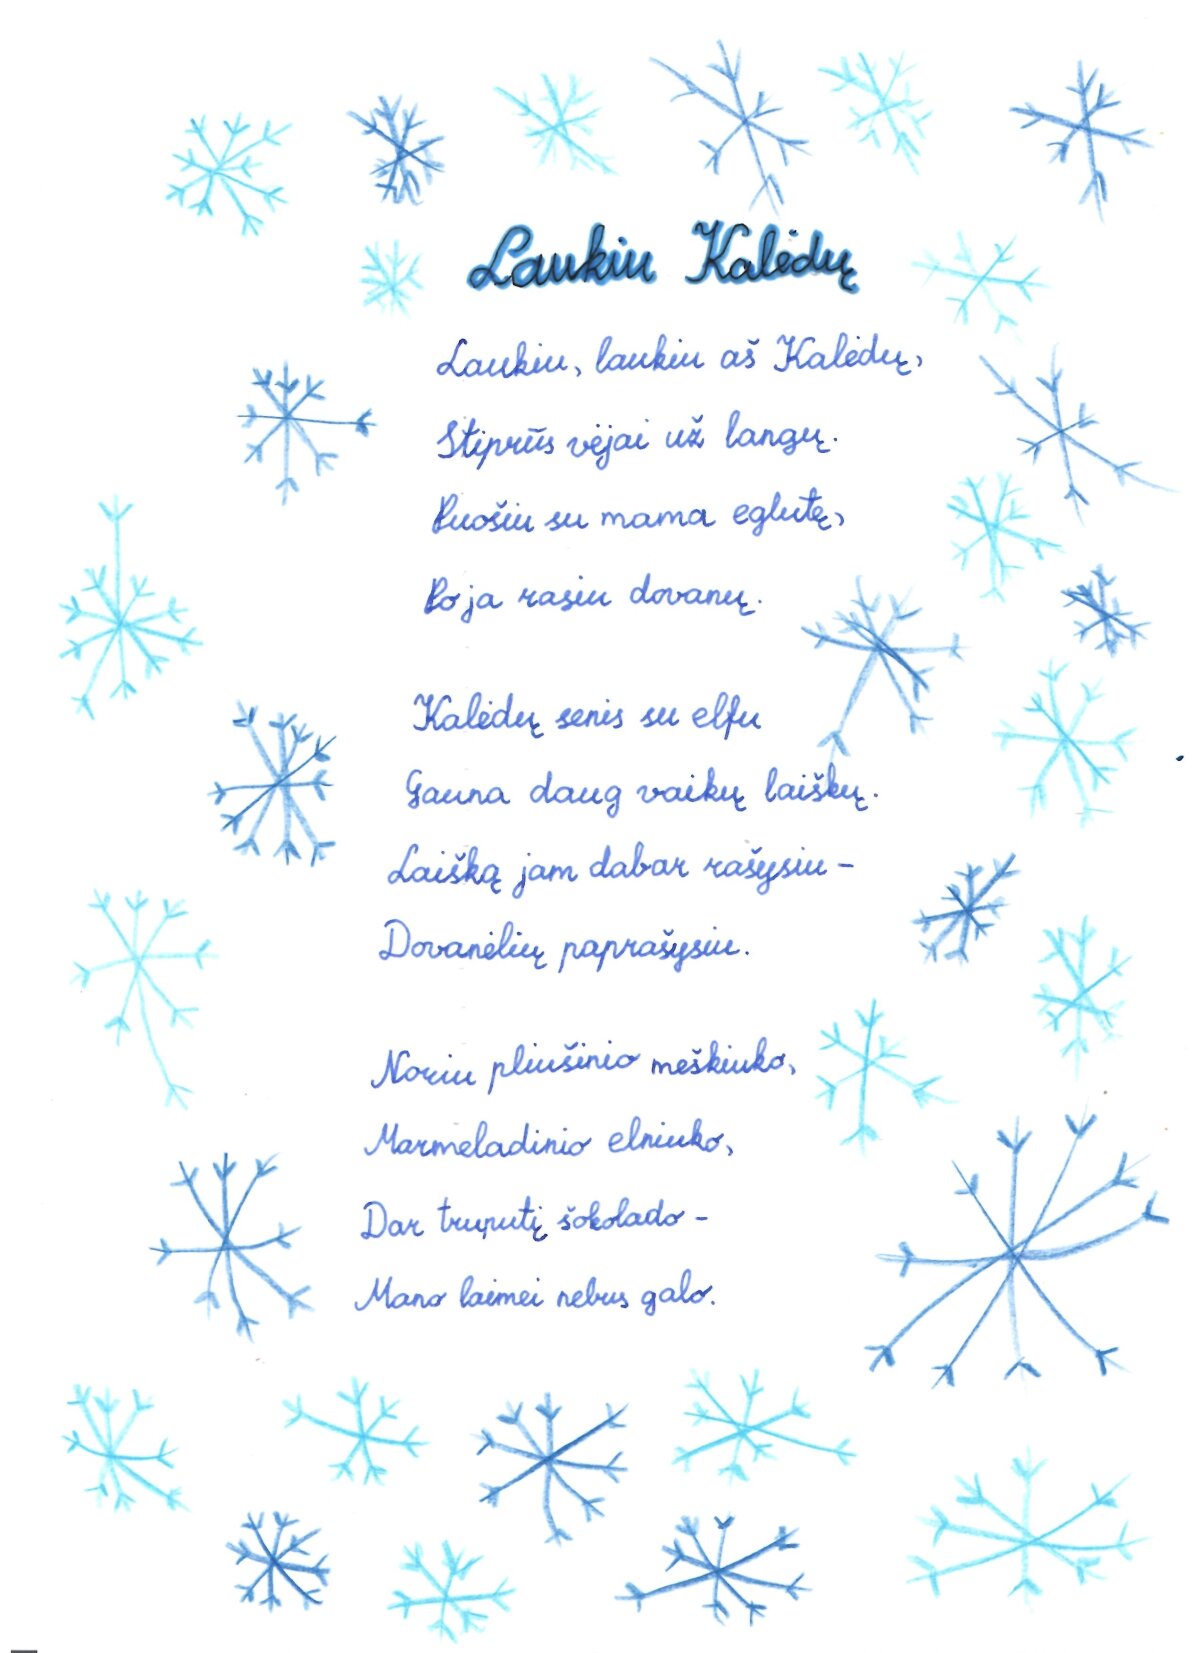 Laukiu Kalėdų
Laukiu, laukiu aš Kalėdų,
Stiprūs vėjai už langų.
Puošiu su mama eglutę,
Po ja rasiu dovanų.
Kalėdų senis su elfu
Gauna daug vaikų laiškų.
Laišką jam dabar rašysiu -
Dovanėlių paprašysiu.
Noriu pliušinio meškiuko,
Marmeladinio elniuko,
Dar truputį šokolado -
Mano laimei nebus galo.